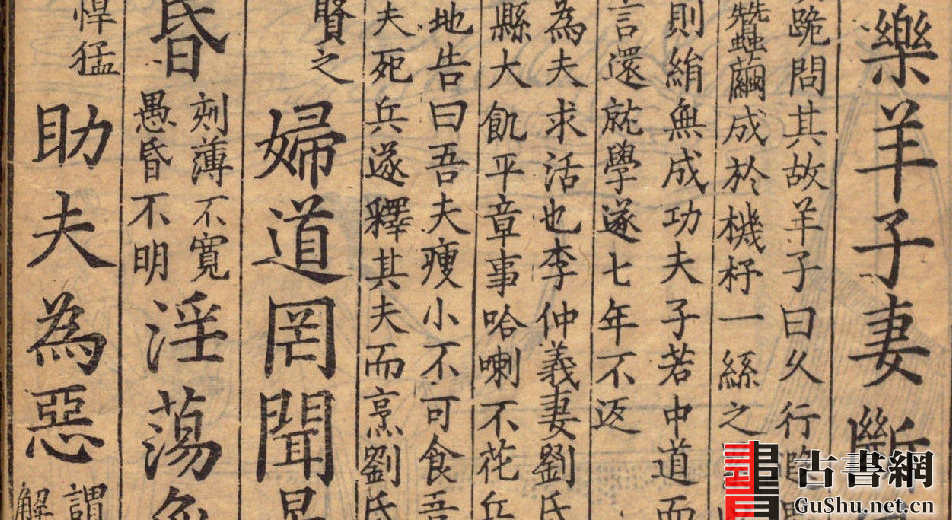 樂羊子妻斷
跪問其故羊子曰久行
蠶繭成於機杼一絲之
則絹無成功夫子若中道而
言還就學遂七年不返
為夫求活也李仲義妻劉氏
縣大飢平章事哈喇不花兵
地告曰吾夫瘦小不可食吾
夫死兵遂釋其夫而烹劉氏
賢之
婦道罔聞
昏
刻薄不寬
愚昏不明
淫蕩
悍猛
助夫為惡
謂
解
古書網
GuShu.net.cn